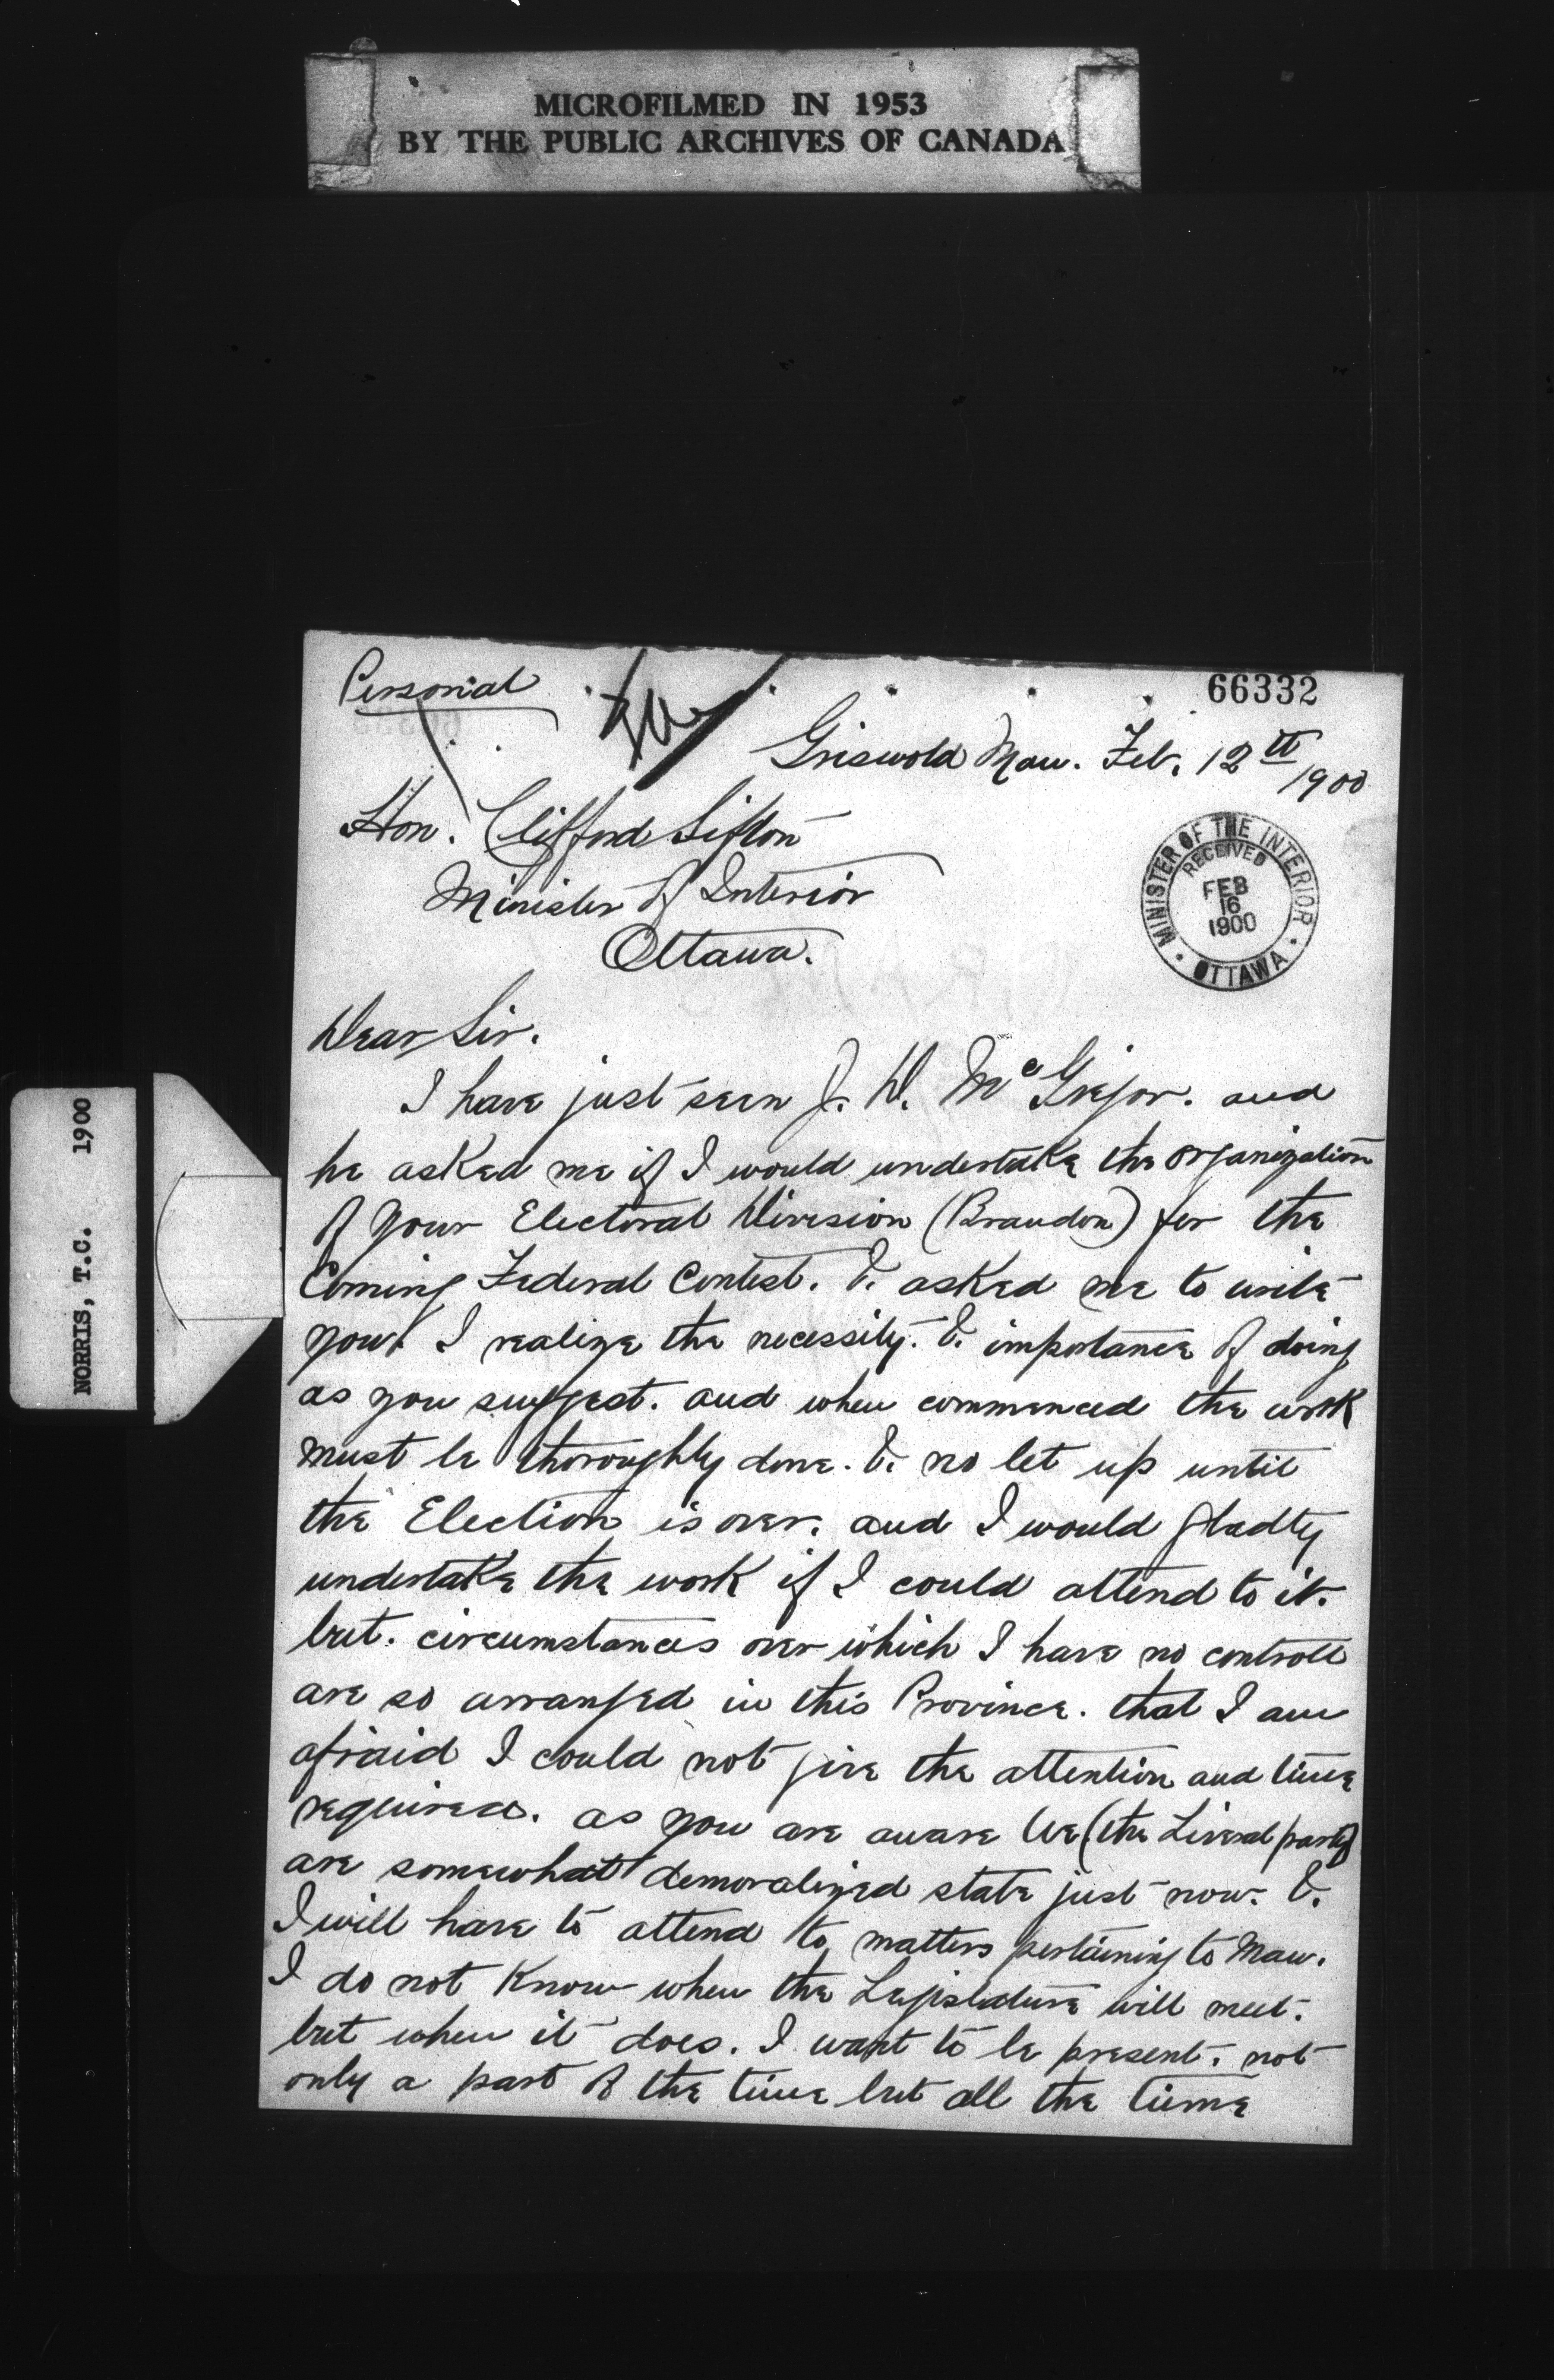 MICROFILMED IN 1953
BY THE PUBLIC ARCHIVES OF CANADA
NORRIS, T.C. 1900
Personal
66332
Griswold Man. Feb. 12th
1900
Hon. Clifford Sifton
Minister of Interior
Ottawa.
MINISTER OF THE INTERIOR
RECEIVED
FEB
16
1900
OTTAWA
Dear Sir.
I have just seen J. D. McGregor. and
he asked me if I would undertake the organization
of your Electoral Division (Brandon) for the
Coming Federal Contest. & asked me to write
you. I realize the necessity. & importance of doing
as you suggest. and when commenced the work
must be thoroughly done. & no let up until
the Election is over. and I would gladly
undertake the work if I could attend to it.
but. circumstances over which I have no controll
are so arranged in this Province. that I am
afraid I could not give the attention and time
required. as you are aware We (the Liberal party)
are somewhat demoralized state just now. &
I will have to attend to matters pertaining to Man.
I do not know when the Legislature will meet.
but when it does. I want to be present. not
only a part of the time but all the time